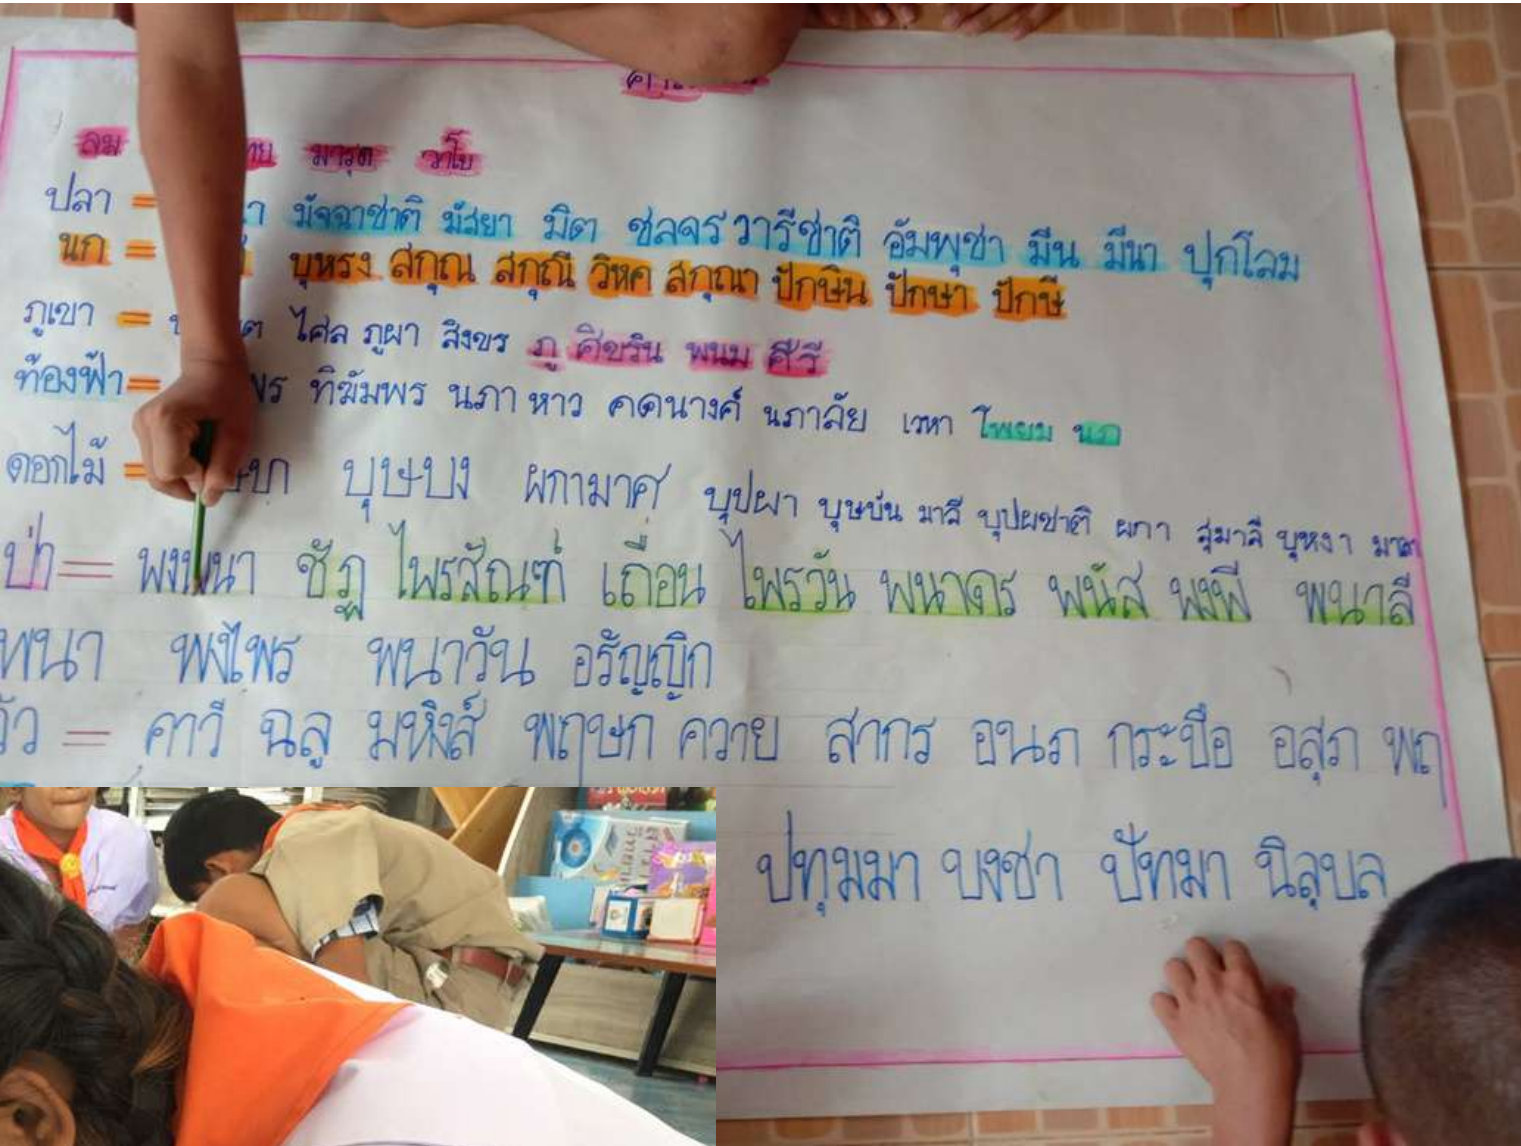 ลม มารุต วาโย
ปลา = มัจฉาชาติ มัสยา มิต ชลจร วารีชาติ อัมพุชา มีน มีนา ปุถุโลม
นก = บุหรง สกุณ สกุณี วิหค สกุณา ปักษิน ปักษา ปักษี
ภูเขา = ไศล ภูผา สิงขร ภู ศิขริน พนม ศีรี
ท้องฟ้า = ทิฆัมพร นภา หาว คคนางค์ นภาลัย เวหา โพยม นภ
ดอกไม้ = บุษบง ผกามาศ บุปผา บุษบัน มาลี บุปผชาติ ผกา สุมาลี บุหงา
ป่า = พงพนา ชัฏ ไพรสัณฑ์ เถื่อน ไพรวัน พนาดร พนัส พงพี พนาลี
พนา พงไพร พนาวัน อรัญญิก
วัว = คาวี ฉลู มหิงส์ พฤษภ ควาย สากร อนภ กระบือ อสุภ พฤ
ปทุมมา บงชา ปัทมา นิลุบล